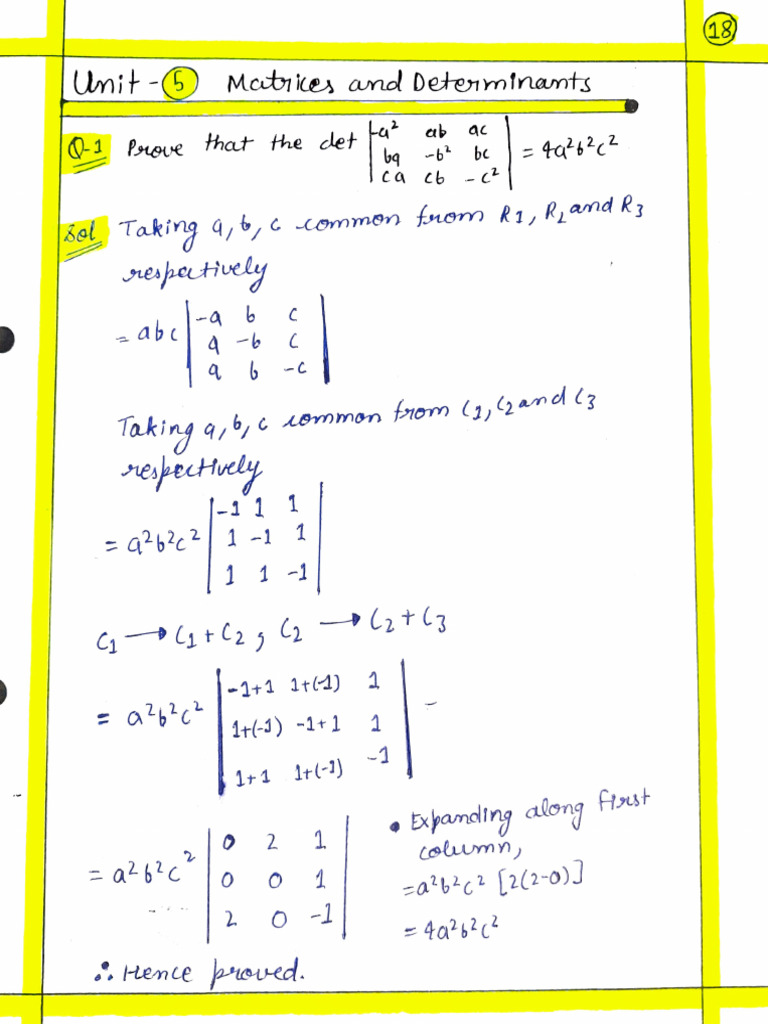 18
Unit - 5 Matrices and Determinants
Q-1 Prove that the det | -a² ab ac | = 4a²b²c²
| ba -b² bc |
| ca cb -c² |
Sol Taking a, b, c common from R1, R2 and R3
respectively
= abc | -a b c |
| a -b c |
| a b -c |
Taking a, b, c common from C1, C2 and C3
respectively
= a²b²c² | -1 1 1 |
| 1 -1 1 |
| 1 1 -1 |
C1 → C1 + C2, C2 → C2 + C3
= a²b²c² | -1+1 1+(-1) 1 |
| 1+(-1) -1+1 1 |
| 1+1 1+(-1) -1 |
= a²b²c² | 0 2 1 |
| 0 0 1 |
| 2 0 -1 |
• Expanding along first
column,
= a²b²c² [2(2-0)]
= 4a²b²c²
∴ Hence proved.